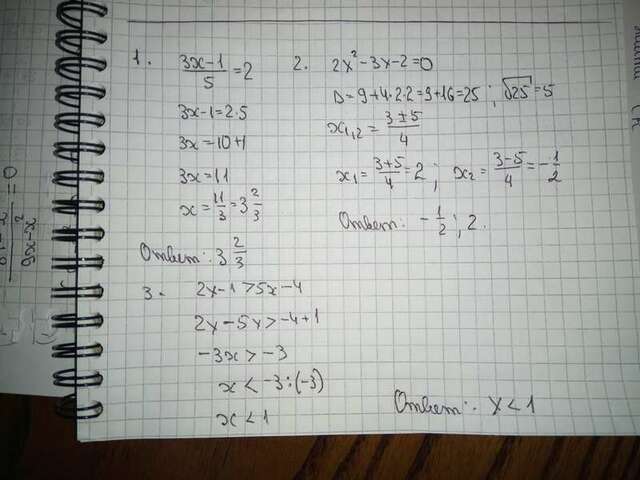 1. (3x-1)/5=2
3x-1=2·5
3x=10+1
3x=11
x=11/3=3 2/3
Ответ: 3 2/3
2. 2x²-3x-2=0
D=9+4·2·2=9+16=25; √25=5
x₁,₂=(3±5)/4
x₁=(3+5)/4=2; x₂=(3-5)/4=-1/2
Ответ: -1/2; 2.
3. 2x-1>5x-4
2x-5x>-4+1
-3x>-3
x<-3:(-3)
x<1
Ответ: x<1